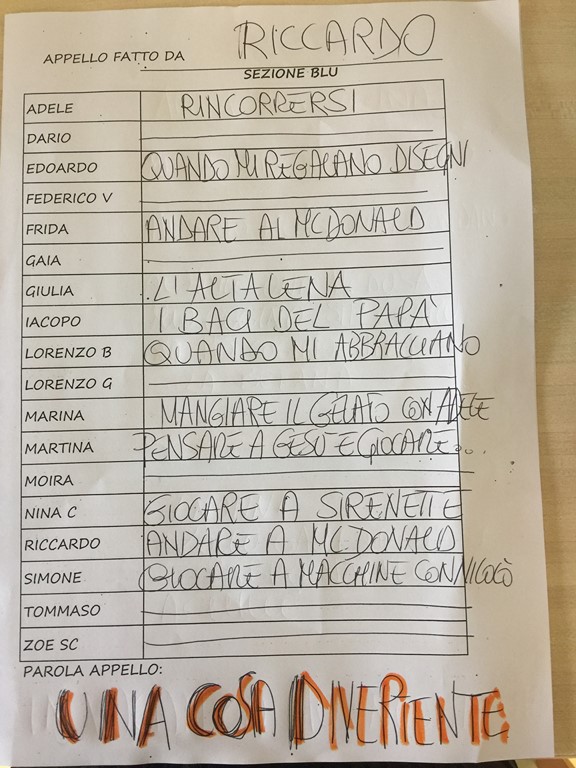 APPELLO FATTO DA RICCARDO
SEZIONE BLU
ADELE RINCORRERSI
DARIO
EDOARDO QUANDO MI REGALANO DISEGNI
FEDERICO V
FRIDA ANDARE AL MCDONALD
GAIA
GIULIA L'ALTALENA
IACOPO I BACI DEL PAPÀ
LORENZO B QUANDO MI ABBRACCIANO
LORENZO G
MARINA MANGIARE IL GELATO CON ADELE
MARTINA PENSARE A GESÙ E GIOCARE...
MOIRA
NINA C GIOCARE A SIRENETTE
RICCARDO ANDARE A MCDONALD
SIMONE GIOCARE A MACCHINE CON NICOLÒ
TOMMASO
ZOE SC
PAROLA APPELLO:
UNA COSA DIVERTENTE